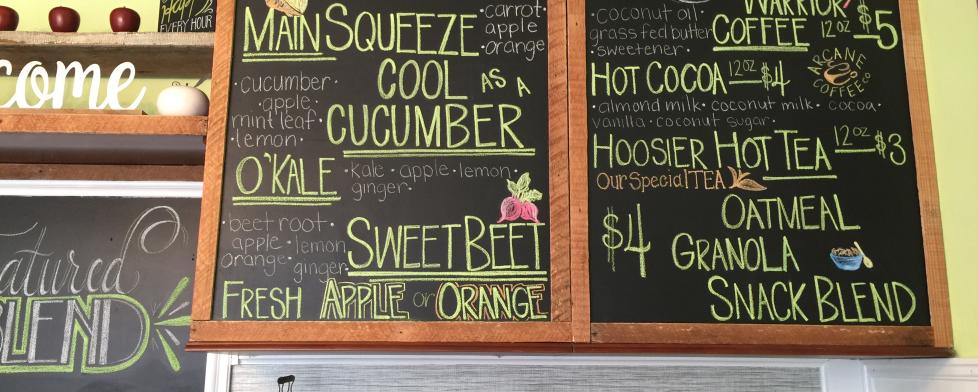 EVERY HOUR
come
eatured
BLEND
MAIN SQUEEZE
·carrot·
apple
·orange·
·cucumber·
apple·
mint leaf·
·lemon·
COOL AS A
CUCUMBER
O'KALE
·kale·apple·lemon·
ginger·
·beet root·
apple·lemon
orange·
ginger·
SWEET BEET
FRESH APPLE or ORANGE
·coconut oil·
grassfed butter
·sweetener·
WARRIOR
COFFEE 12oz $5
ARCANE
COFFEE CO
HOT COCOA 12oz $4
·almond milk·coconut milk·cocoa·
vanilla·coconut sugar·
HOOSIER HOT TEA 12oz $3
Our Special TEA
$4
OATMEAL
GRANOLA
SNACK BLEND